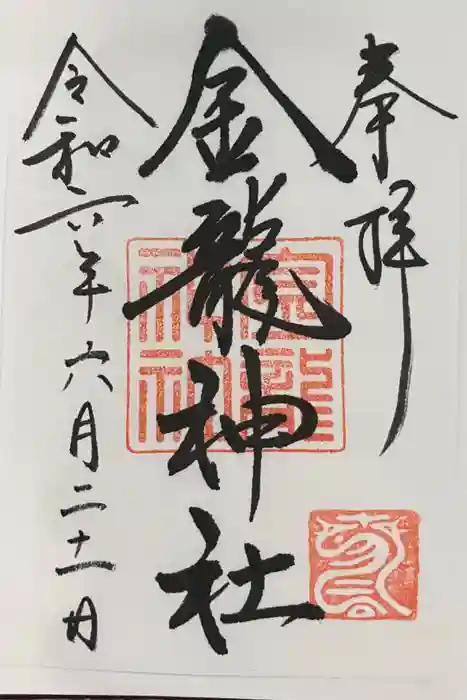 奉拝
金龍神社
令和六年六月二十一日